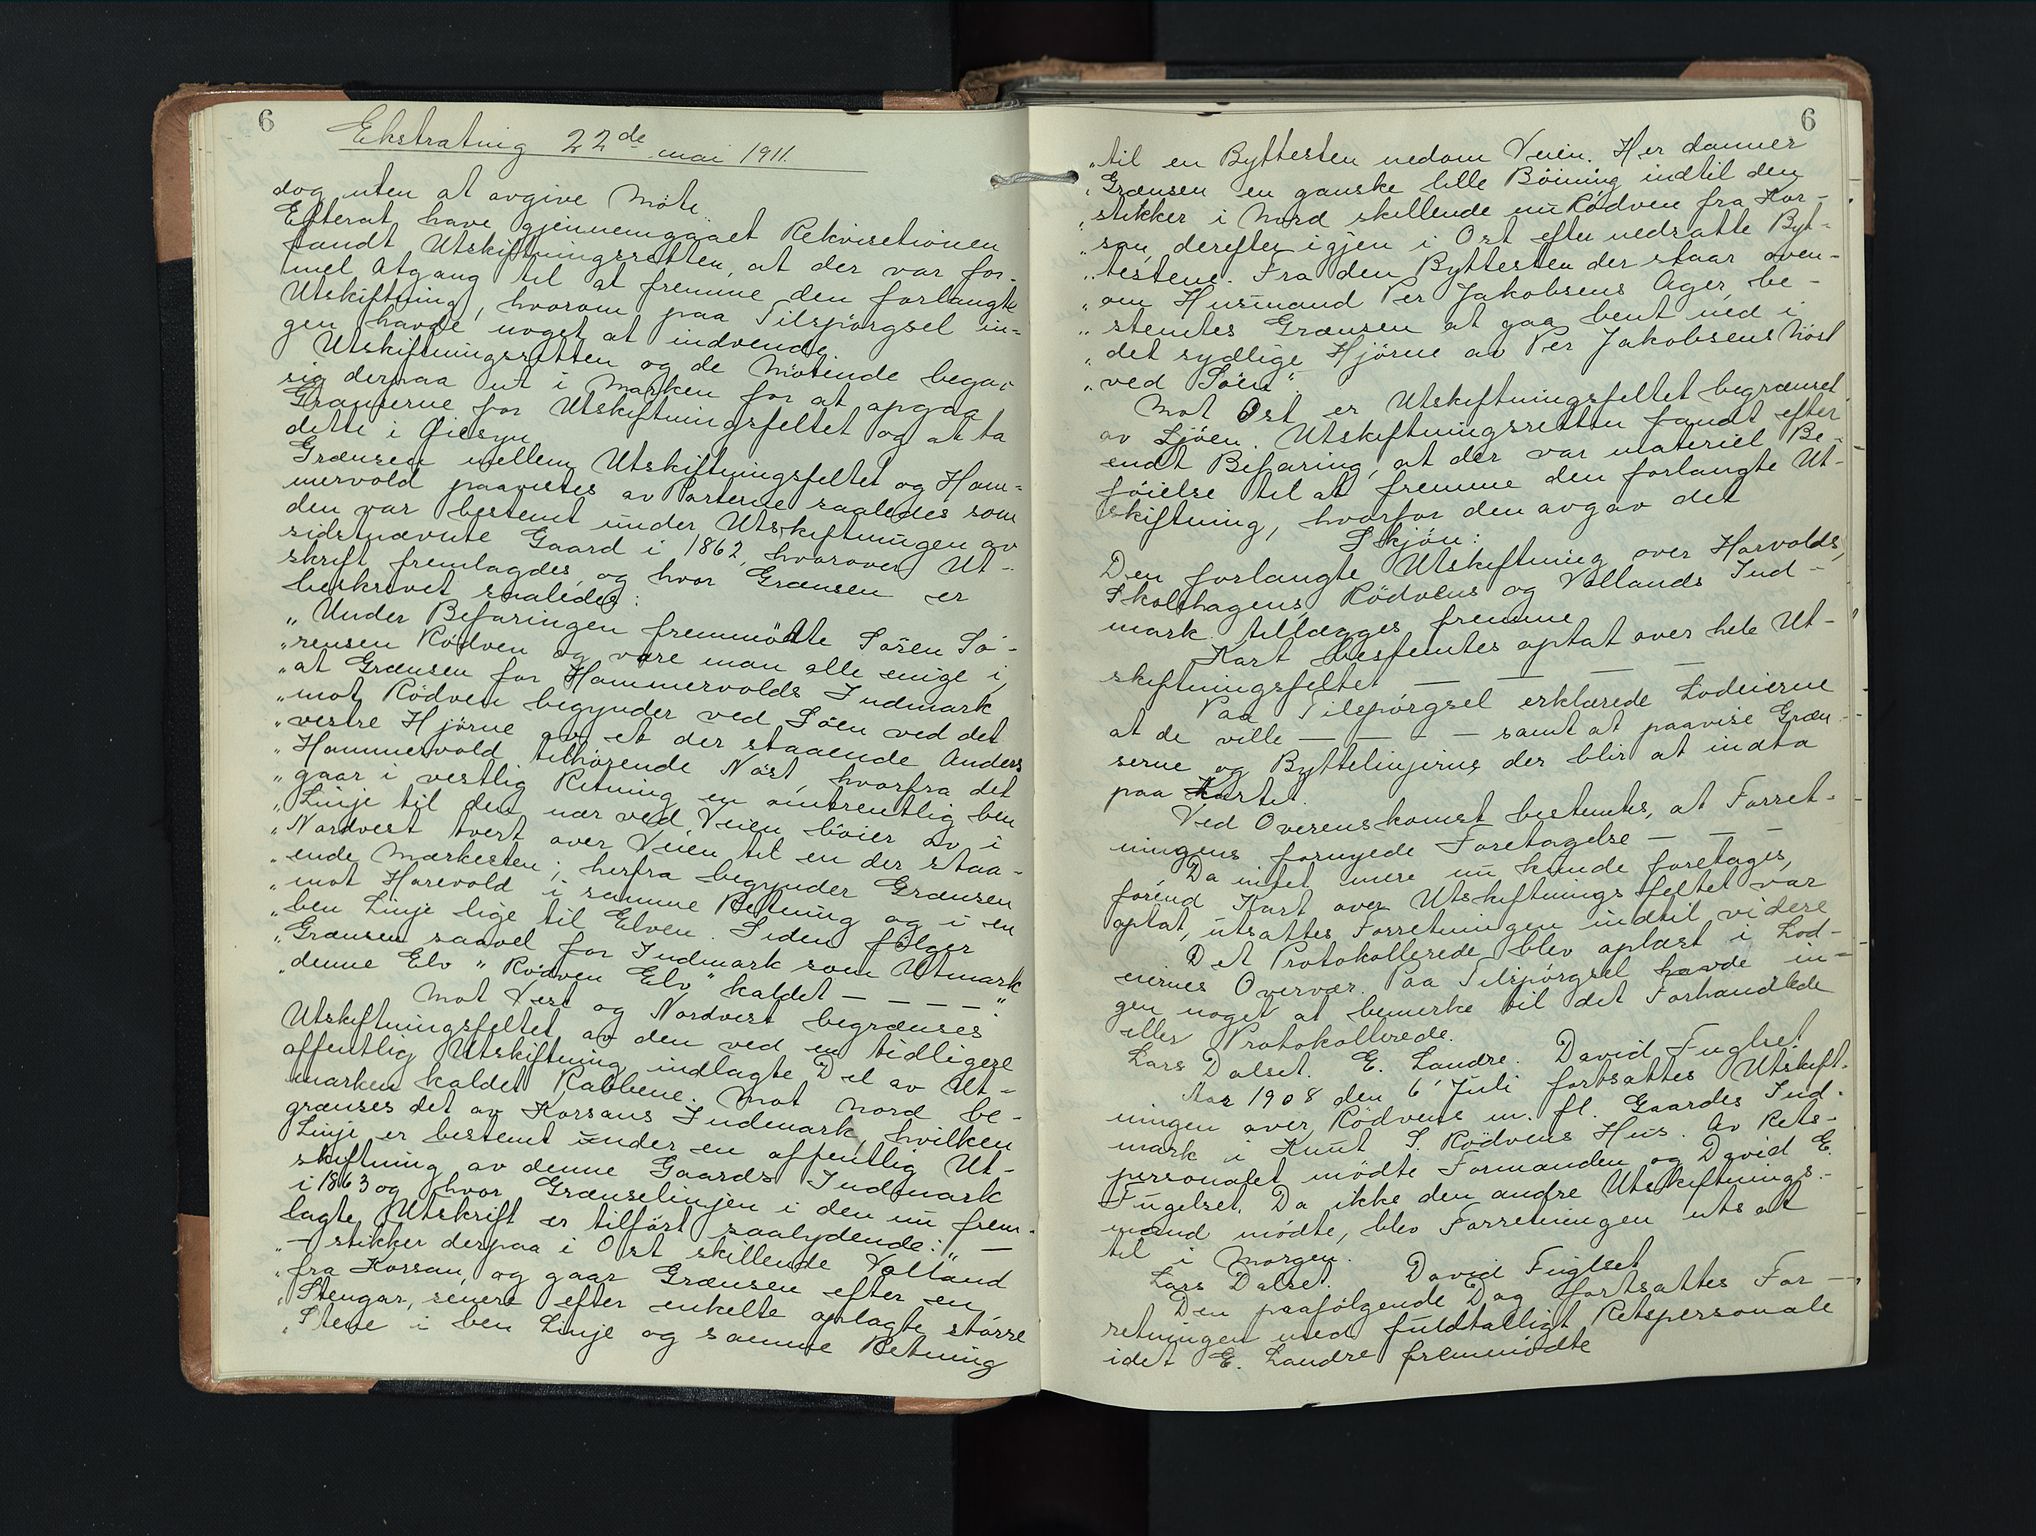 6
Ekstrating 22de mai 1911.
dog uten at avgive Møte.
Efterat have gjennemgaaet Rekvisitionen
fandt Utskiftningsretten, at der var for-
mel Atgang til at fremme den forlangte
Utskiftning, hvorom paa Tilspørgsel in-
gen havde noget at indvende.
Utskiftningsretten og de Møtende begav
sig derpaa ut i Marken for at opgaa
Grænserne for Utskiftningsfeltet og at ta
dette i Øiesyn.
Grænsen mellem Utskiftningsfeltet og Ham-
mervold paavistes av Parterne saaledes som
den var bestemt under Utskiftningen av
sidstnævnte Gaard i 1862, hvorover Ut-
skrift fremlagdes, og hvor Grænsen er
beskrevet saaledes:
„Under Befaringen fremmødte Søren Sø-
„rensen Rødven og vare man alle enige i,
„at Grænsen for Hammervolds Indmark
„mot Rødven begynder ved Søen ved det
„vestre Hjørne av et der staaende Anders
„Hammervold tilhørende Nøst, hvorfra det
„gaar i vestlig Retning en omtrentlig ben
„Linje til den nær ved Veien bøier av i
„Nordvest tvert over Veien til en der staa-
„ende Mærkesten; herfra begynder Grænsen
„mot Harevold i samme Retning og i en
„ben Linje lige til Elven. Siden følger
„Grænsen saavel for Indmark som Utmark
„denne Elv „Rødven Elv“ kaldet — — — —“
Mot Vest og Nordvest begrænses
Utskiftningsfeltet av den ved en tidligere
offentlig Utskiftning indlagte Del av Ut-
marken kaldet Rabbene. Mot Nord be-
grænses det av Korsans Indmark, hvilken
Linje er bestemt under en offentlig Ut-
skiftning av denne Gaards Indmark
i 1863 og hvor Grænselinjen i den nu frem-
lagte Utskrift er tilført saalydende: „ —
„— stikker derpaa i Ost skillende Volland
„fra Korsan, og gaar Grænsen efter en
„Stengar, senere efter enkelte oplagte større
„Stene i ben Linje og samme Retning
6
„til en Byttesten nedom Veien. Her danner
„Grænsen en ganske lille Bøining indtil den
„stikker i Nord skillende nu Rødven fra Kor-
„san, derefter igjen i Ost efter nedsatte Byt-
„testene. Fra den Byttesten der staar oven-
„om Husmand Per Jakobsens Ager, be-
„stemtes Grænsen at gaa bent ned i
„det sydlige Hjørne av Per Jakobsens Nøst
„ved Søen“.
Mot Ost er Utskiftningsfeltet begrænset
av Sjøen. Utskiftningsretten fandt efter
endt Befaring, at der var materiel Be-
føielse til at fremme den forlangte Ut-
skiftning, hvorfor den avgav det
Skjøn:
Den forlangte Utskiftning over Harvolds,
Skolehagens, Rødvens og Vollands Ind-
mark tillægges fremme.
Kart bestemtes optat over hele Ut-
skiftningsfeltet — — — —
Paa Tilspørgsel erklærede Lodeierne
at de ville — — — — samt at paavise Græn-
serne og Byttelinjerne der blir at indta
paa Kartet.
Ved Overenskomst bestemtes, at Forret-
ningens fornyede Foretagelse — — —
Da intet mere nu kunde foretages,
førend Kart over Utskiftningsfeltet var
optat, utsattes Forretningen indtil videre.
Det Protokollerede blev oplæst i Lod-
eiernes Overvær. Paa Tilspørgsel havde in-
gen noget at bemerke til det Forhandlede
eller Protokollerede.
Lars Dalset. E. Landre. David Fuglset
Aar 1908 den 6' Juli fortsattes Utskift-
ningen over Rødvens m. fl. Gaardes Ind-
mark i Knut S. Rødvens Hus. Av Rets-
personalet mødte Formanden og David E.
Fugelset. Da ikke den andre Utskiftnings-
mand mødte, blev Forretningen utsat
til i Morgen.
Lars Dalset. David Fuglset
Den paafølgende Dag fortsattes For-
retningen med fuldtalligt Retspersonale
idet E. Landre fremmødte